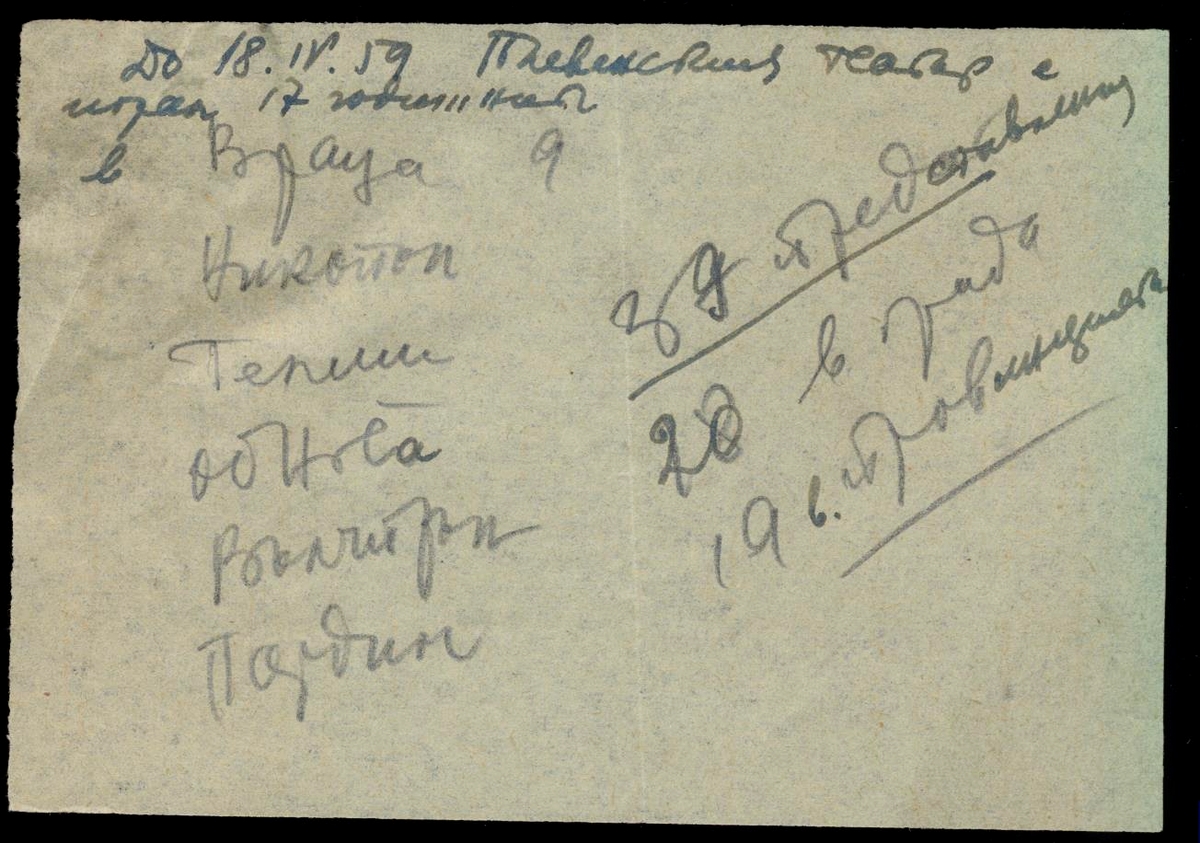 До 18.IV.59 Плевенския театър е
играл 17 годишнат
в Враца 9
Никопол
Телиш
Обнова
Вълчитрън
Пордим
39 представления
20 в града
19 в. провинцията